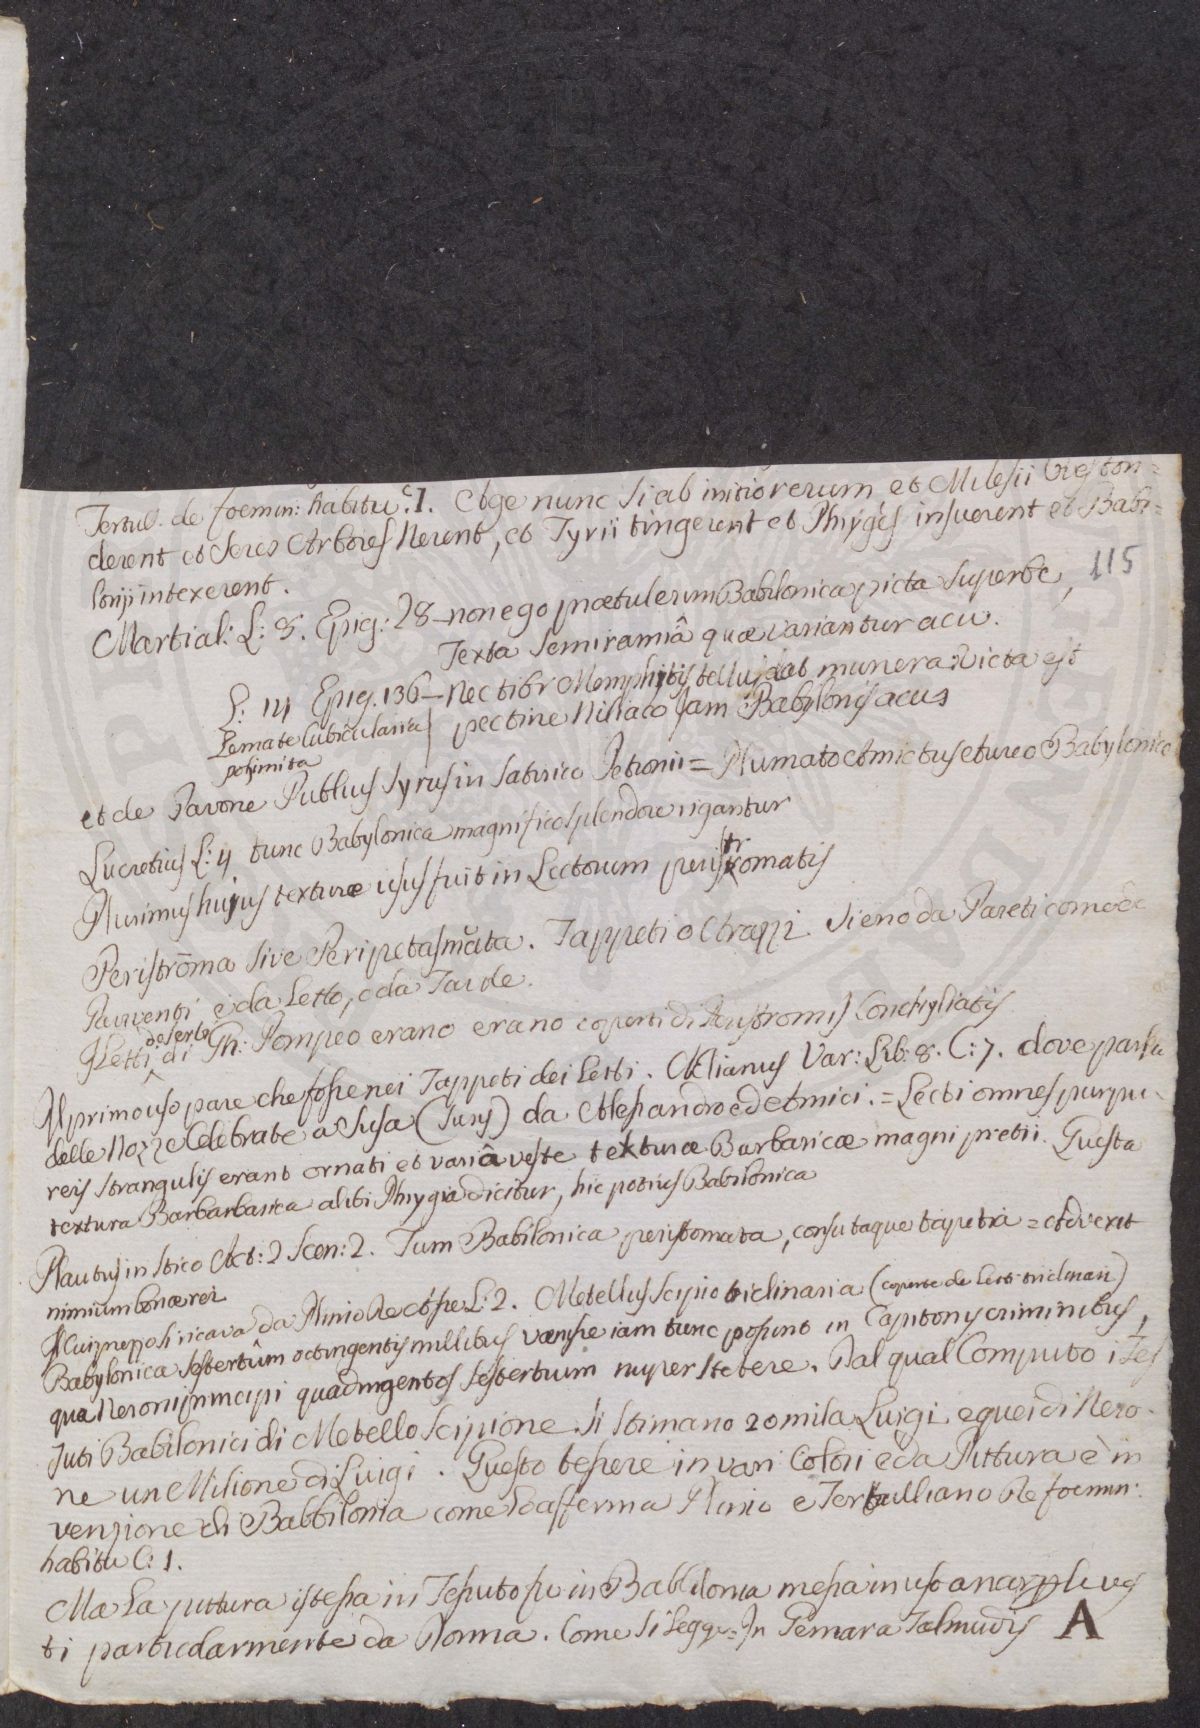 Tertul. de foemin: habitu C. 1. Age nunc si ab initio rerum et Milesii Oves ton=
derent et Seres Arbores Nerent, et Tyrii tingerent et Phryges insuerent et Babi=
lonij intexerent.
115
Martial: L: 8. Epig: 28 – non ego praetulerim Babilonica picta superbe,
Texta Semiramiâ quae variantur acu.
L: 14 Epig. 136 – Nec tibi Memphitis tellus dat munera: Victa est
Lemate Cubicularia polimita
pectine Niliaco Jam Babylonis acus
et de Pavone Publius Syrus in Satirico Petronii = Plumato Amictus Aureo Babylonico
Lucretius L: 4 tunc Babylonica magnifico splendore rigantur
Plurimus hujus texturae usus fuit in Lectorum peristromatis
Peristrōma sive Peripetasmăta. Tappeti o Arazzi. Sieno da Pareti come da
Paraventi e da Letto, o da Tavole.
I Letti deserti di Gn: Pompeo erano erano coperti di Peristromis Conchyliatis
Il primo uso pare che fosse nei Tappeti dei Letti. AElianus Var: Lib: 8. C: 7. dove parla
delle Nozze Celebrate a Susa (Suns) da Alessandro ed Amici. = Lecti omnes purpu=
reis strangulis erant ornati et variâ veste texturae Barbaricae magni pretii. Questa
textura Barbarbarica alibi Phrygia dicitur, hic potius Babilonica
Plautus in Stico Act: 2 Scen: 2. Tum Babilonica peristomata, consutaque tapetia = Advexit
nimium bonae rei
Il Cui prezzo si ricava da Plinio L: 2. Metellus Scipio triclinaria (coperte de Letti tricliniari)
Babylonica sestertûm octingentis millibus vaenisse iam tunc posuit in Capitonis criminibus,
quae Neroni principi quadringentos sestertium nuper stetere. Dal qual Computo i Tes
suti Babilonici di Metello Scipione si stimano 20 mila Luigi e quei di Nero=
ne un Milione di Luigi. Questo tessere in vari Colori e da Pittura è in
venzione di Babbilonia come lo afferma Plinio e Tertulliano De foemin:
habitu C: 1.
Ma La pittura istessa in Tessuto fu in Babilonia messa in uso ves
ti particolarmente da Donna. Come si Legge = In Gemara Talmudis A